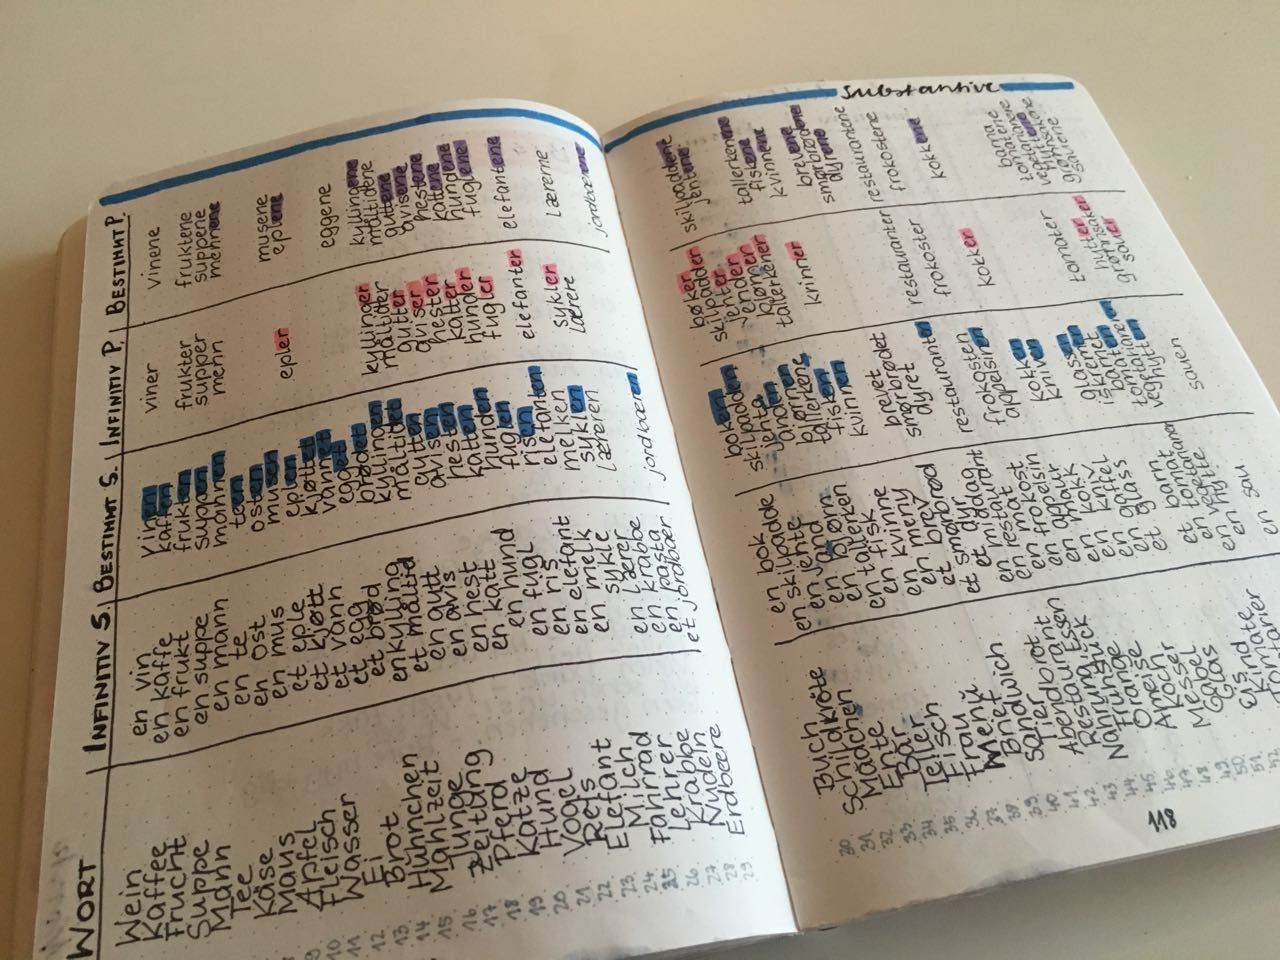 WORT
INFINITIV S.
BESTIMMT S.
INFINITIV P.
BESTIMMT P.
Wein
Kaffee
Frucht
Suppe
Mann
Tee
Käse
Maus
Apfel
Fleisch
Wasser
Ei
Brot
Hühnchen
Mahlzeit
Junge
Zeitung
Pferd
Katze
Hund
Vogel
Reis
Elefant
Milch
Fahrrad
Lehrer
Krabbe
Nudeln
Erdbeere
10.
11.
12.
13.
14.
15.
16.
17.
18.
19.
20.
21.
22.
23.
24.
25.
26.
27.
28.
29.
en vin
en kaffe
en frukt
en suppe
en mann
en te
en ost
en mus
et eple
et kjøtt
et vann
et egg
et brød
en kylling
et måltid
en gutt
en avis
en hest
en katt
en hund
en fugl
en ris
en elefant
en melk
en sykle
en lærer
en krabbe
en pasta
et jordbær
vinen
kaffen
frukten
suppen
mannen
teen
osten
musen
kjøttet
vannet
brødet
kyllingen
gutten
avisen
hesten
katten
hunden
fuglen
risen
elefanten
melken
syklen
læreren
jordbæren
viner
frukter
supper
menn
epler
kyllinger
måltider
gutter
aviser
hester
katter
hunder
fugler
elefanter
sykler
lærere
vinene
fruktene
suppene
mennene
musene
eplene
eggene
kyllingene
måltidene
guttene
avisene
hestene
kattene
hundene
fuglene
elefantene
lærerne
jordbærene
substantive
Buch
Schildkröte
Mädchen
Ente
Bär
Teller
Fisch
Frau
Menü
Brief
Sandwich
Tier
Abendbrot
Restaurant
Frühstück
Orange
Koch
Messer
Gabel
Glas
30.
31.
32.
33.
34.
35.
36.
37.
38.
39.
40.
41.
42.
43.
44.
45.
46.
47.
48.
49.
50.
51.
52.
en bok
en skilpadde
en jente
en and
en bjørn
en tallerken
en fisk
en kvinne
en meny
et brev
et smørbrød
et dyr
et middag
en restaurant
en frokost
en kokk
en kniv
en gaffel
et glass
en hytte
en sau
boken
skilpadden
jenta
anden
bjørnen
fisken
kvinnen
brevet
smørbrødet
dyret
restauranten
frokosten
kokken
kniven
sauen
bøker
skilpadder
jenter
ender
tallerkener
krinner
restauranter
frokoster
kokker
tomater
hytter
grønnsaker
sauer
skilpaddene
jentene
tallerkenene
fiskene
kvinnene
brevene
smørbrødene
dyrene
restaurantene
frokostene
kokkene
sauene
118